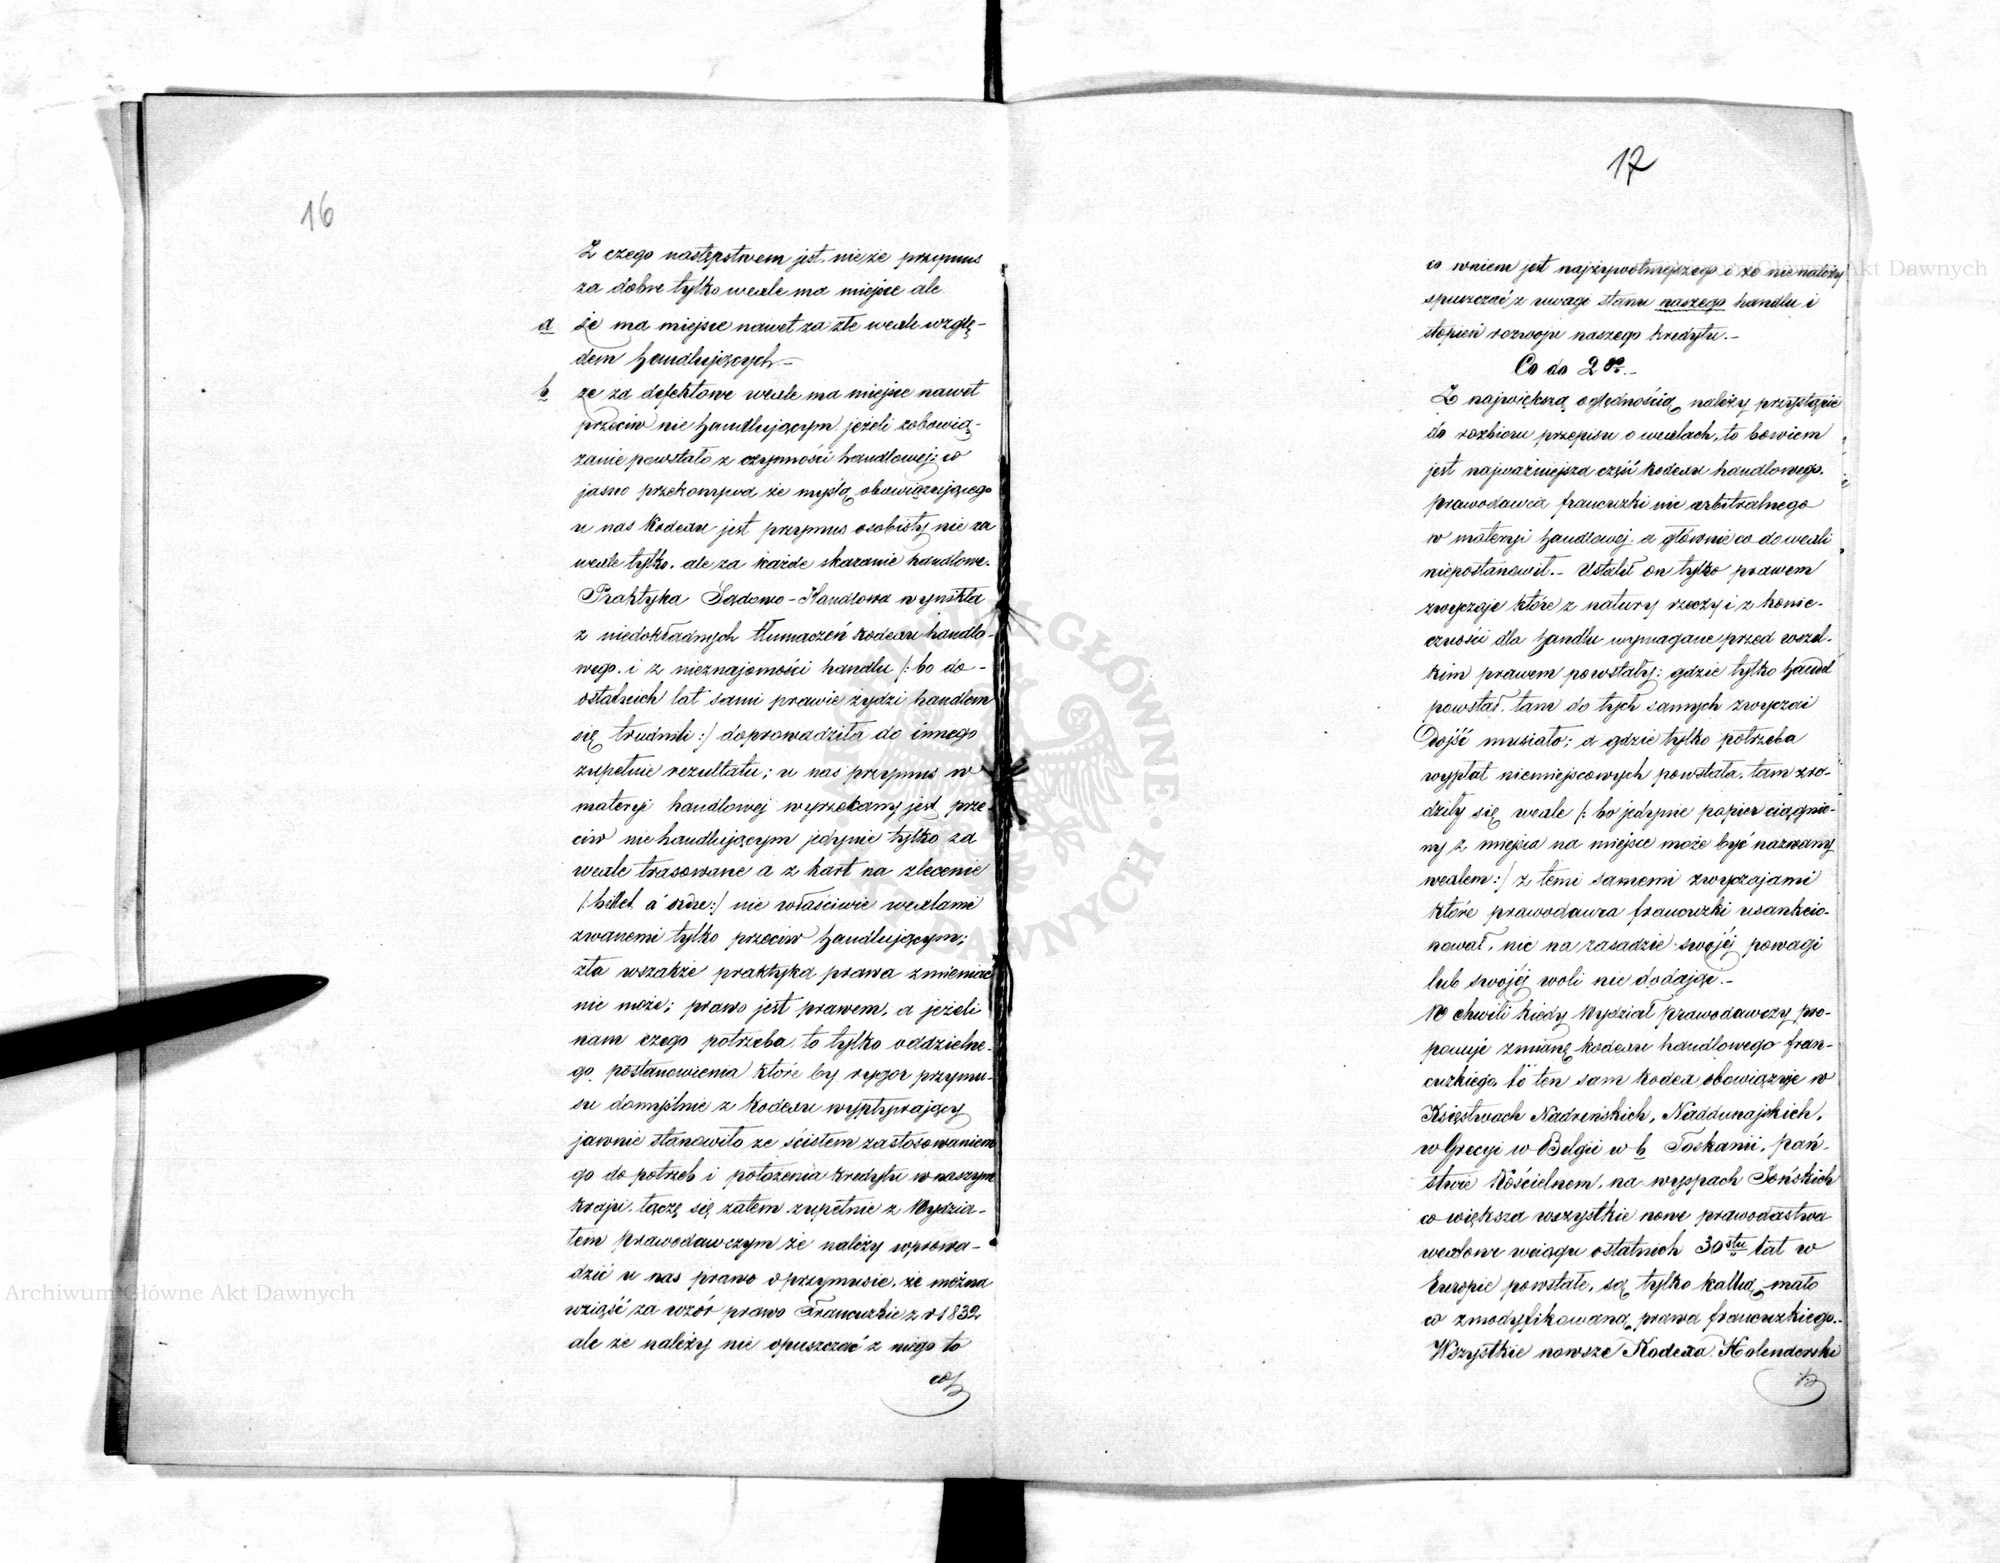 16
Z czego następstwem jest, nie że przymus
za dobre tylko wexle ma miejsce ale
a że ma miejsce nawet za złe wexle wzglę-
dem handlujących.-
b że za defektowe wexle ma miejsce nawet
przeciw nie handlującym jeżeli zobowią-
zanie powstało z czynności handlowej; co
jasno przekonywa że myślą obowiązującego
u nas kodexu jest przymus osobisty nie za
wexle tylko, ale za każde skazanie handlowe.
Praktyka Sądowo-Handlowa wynikła
z niedokładnych tłumaczeń kodexu handlo-
wego, i z nieznajomości handlu /: bo do-
ostatnich lat sami prawie żydzi handlem
się trudnili :/ doprowadziła do innego
zupełnie rezultatu; u nas przymus w
materyi handlowej wyrzekany jest prze-
ciw nie handlującym jedynie tylko za
wexle trasowane a z kart na zlecenie
/: billet à ordre :/ nie właściwie wexlami
zwanemi tylko przeciw handlującym;
zła wszakże praktyka prawa zmieniać
nie może; prawo jest prawem, a jeżeli
nam czego potrzeba, to tylko oddzielne-
go postanowienia które by rygor przymu-
su domyślnie z kodexu wypływający
jawnie stanowiło ze ścisłem zastosowaniem
go do potrzeb i położenia kredytu w naszym
kraju, łączę się zatem zupełnie z Wydzia-
łem prawodawczym że należy wprowa-
dzić u nas prawo o przymusie, że można
wziąść za wzór prawo Francuzkie z r 1832
ale że należy nie opuszczać z niego to
co
17
co w niem jest najżywotniejszego i że nie należy
spuszczać z uwagi stanu naszego handlu i
stopień rozwoju naszego kredytu.-
Co do 2go.-
Z największą oględnością należy przystąpić
do rozbioru przepisu o wexlach, to bowiem
jest najważniejsza część kodexu handlowego.
prawodawca francuzki nic arbitralnego
w materyi handlowej a głównie co do wexli
niepostanowił.- Ustalił on tylko prawem
zwyczaje które z natury rzeczy i z konie-
czności dla handlu wymagane przed wszel-
kim prawem powstały: gdzie tylko handel
powstał, tam do tych samych zwyczai
Dojść musiało; a gdzie tylko potrzeba
wypłat niemiejscowych powstała, tam zro-
dziły się wexle /: bo jedynie papier ciągnio-
ny z miejsca na miejsce może być nazwany
wexlem :/ z temi samemi zwyczajami
które prawodawca francuzki usankcio-
nował, nic na zasadzie swojéj powagi
lub swojéj woli nie dodając.-
W chwili kiedy Wydział prawodawczy pro-
ponuje zmianę kodexu handlowego fran-
cuzkiego, to ten sam kodex obowiązuje w
Księstwach Nadreńskich, Naddunajskich,
w Grecyi w Belgii w b Toskanii, pań-
stwie Kościelnem, na wyspach Jońskich
co większa wszystkie nowe prawodastwa
wexlowe wciągu ostatnich 30stu lat w
Europie powstałe, są tylko kalką mało
co zmodyfikowaną prawa francuzkiego.-
Wszystkie nowsze Kodexa Holenderski
Archiwum Główne Akt Dawnych
Archiwum Główne Akt Dawnych
ARCHIWUM GŁÓWNE AKT DAWNYCH